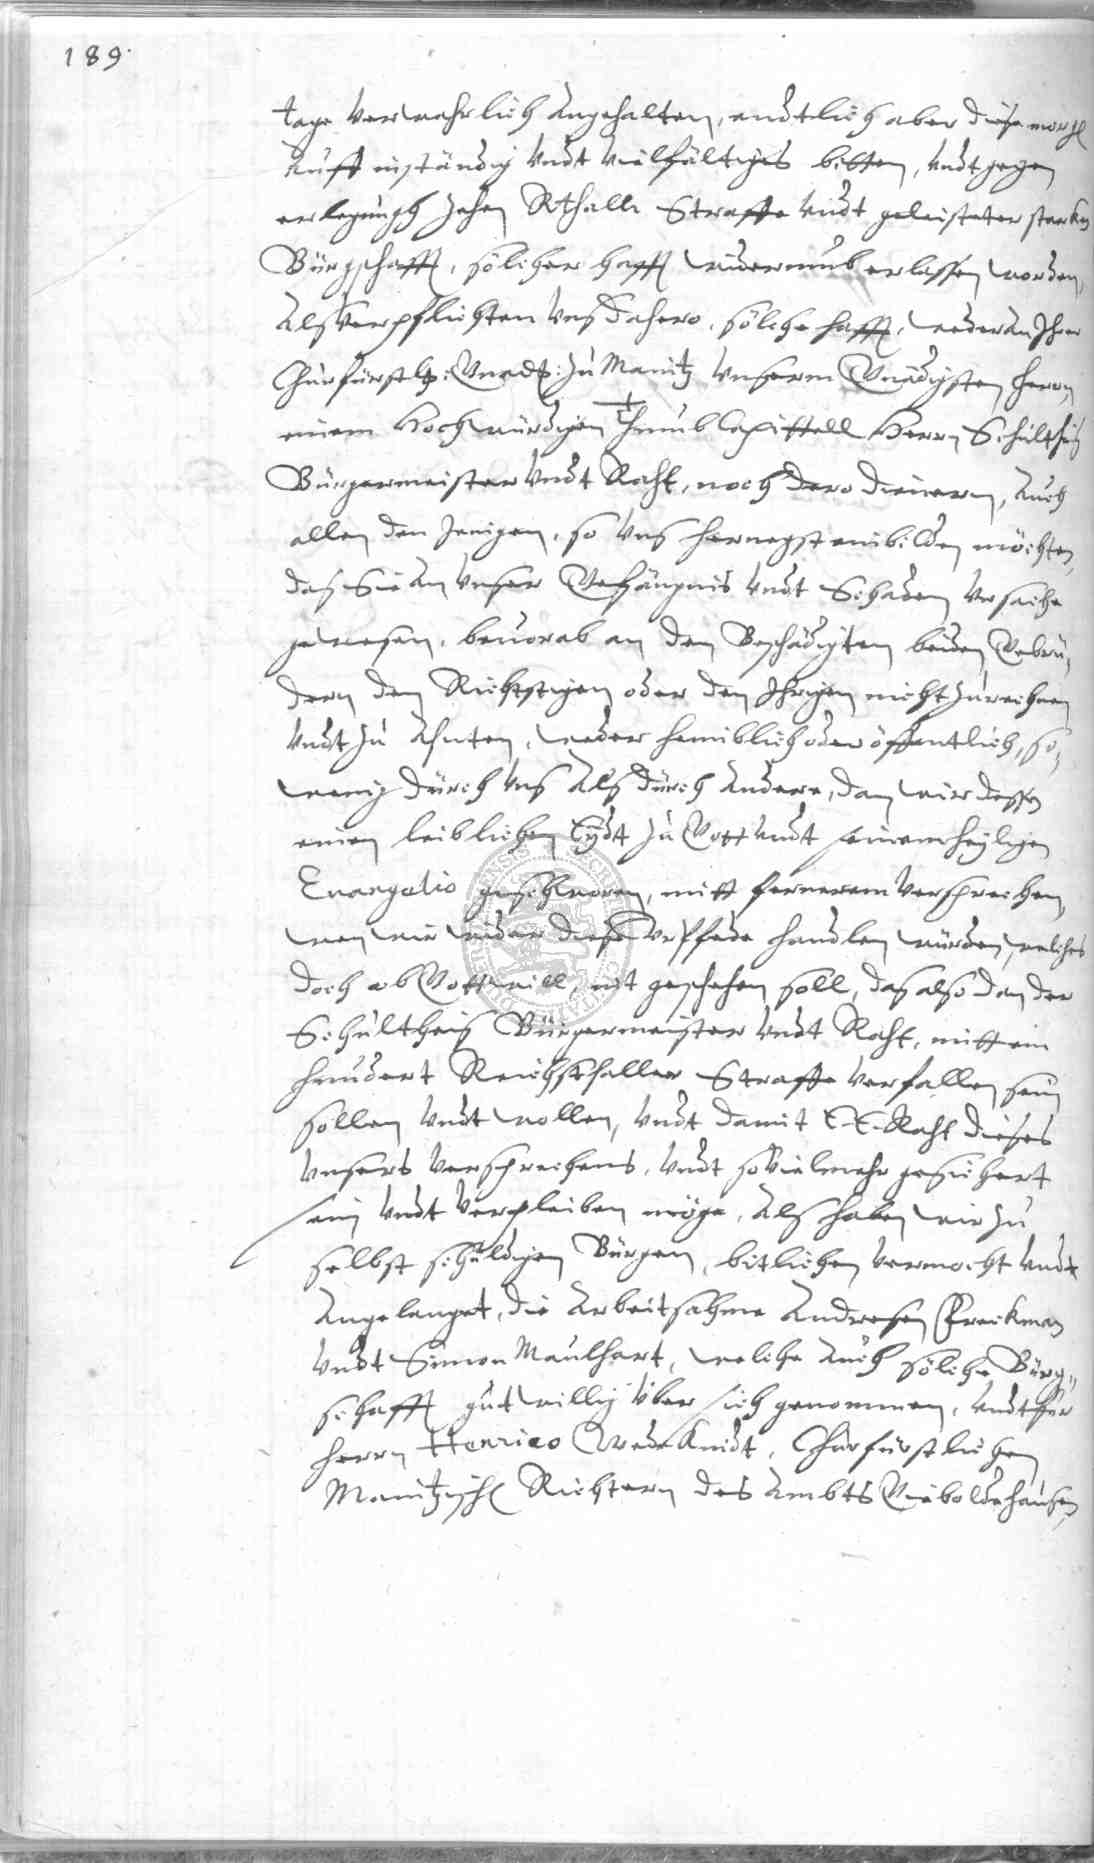 189.
tage verwahrlich angehalten, endtlich aber diese
auff inständig undt vielfältiges bitten, undt gegen
erlegungh zehen Rthallr Straffe undt geleisteter starken
Bürgschafft, sölicher hafft widerumb erlassen worden,
Als verpflichten uns dahero, sölche hafft, weder an Ihrer
Churfürstl: Gnad: zu Maintz unserm Gnädigsten Herrn,
einem Hochwürdigen Thumb Capittell Herrn Schultheis
Bürgermeister undt Raht, noch dero dienern, auch
allen den Jenigen, so uns hernegst einbilden möchten,
das Sie an unser Gefängnis undt Schaden ursache
gewesen, bevorab an den Beschädigten beiden Gebrü,
dern den Richtstigen oder den Ihrigen nicht zu rechnen
undt zu Ahnten, weder heimblich oder öffentlich, so,
wenig durch uns Als durch andere, dan wir dessen
einen leiblichen Eydt zu Gott undt seinem heyligen
Evangelio geschworen, mitt fernerem versprechen,
wen wir wider diese Urpfede handlen würden, welches
doch ob Gott will, nit geschehen soll, das also dan der
Schultheis Bürgermeister undt Raht, mitt ein
hundert Reichsthaller Straffe verfallen sein
sollen undt wollen, undt damit E. E. Raht dieses
unsers versprechens, undt so vielmehr gesichert
sein undt verpleiben möge, Als haben wir zu
selbst schuldigen Bürgen, bitlichen vermocht undt
Angelanget, die Arbeitsahme Andresen Freckman
undt Simon Maulhart, welche auch söliche Bürg,,
schafft gutwillig über sich genommen, undt für
herrn Henrico Wedeknidt, Churfürstlichen
Maintzisch Richtern des Ambts Gieboldehausen,